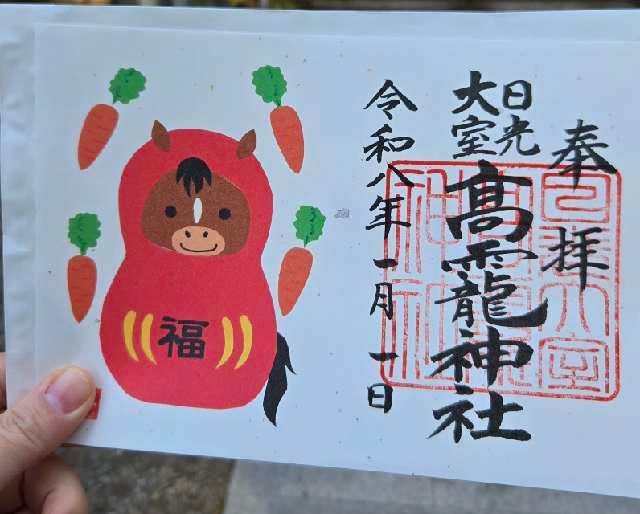 奉拝
日光
大室
高龗神社
令和八年一月一日
福